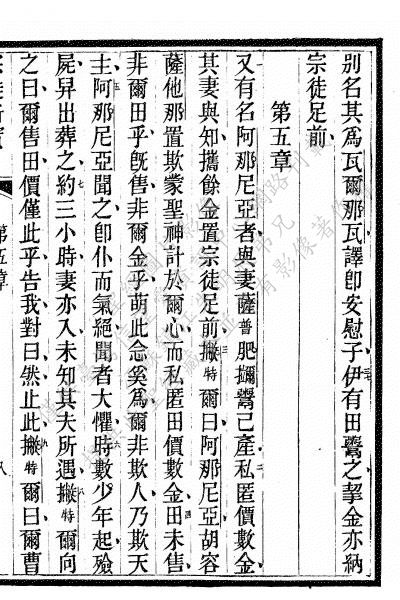 別名其爲瓦爾那瓦譯卽安慰子伊有田鬻之挈金亦納
宗徒足前
第五章
又有名阿那尼亞者與妻薩普肥鬻己產私匿價數金
其妻與知攜餘金置宗徒足前撇特爾曰阿那尼亞胡容
薩他那置欺蒙聖神計於爾心而私匿田價數金田未售
非爾田乎旣售非爾金乎萌此念奚爲爾非欺人乃欺天
主阿那尼亞聞之卽仆而氣絕聞者大懼時數少年起殮
屍舁出葬之約三小時妻亦入未知其夫所遇撇特爾向
之曰爾售田價僅此乎告我對曰然止此撇特爾曰爾曹
第五章